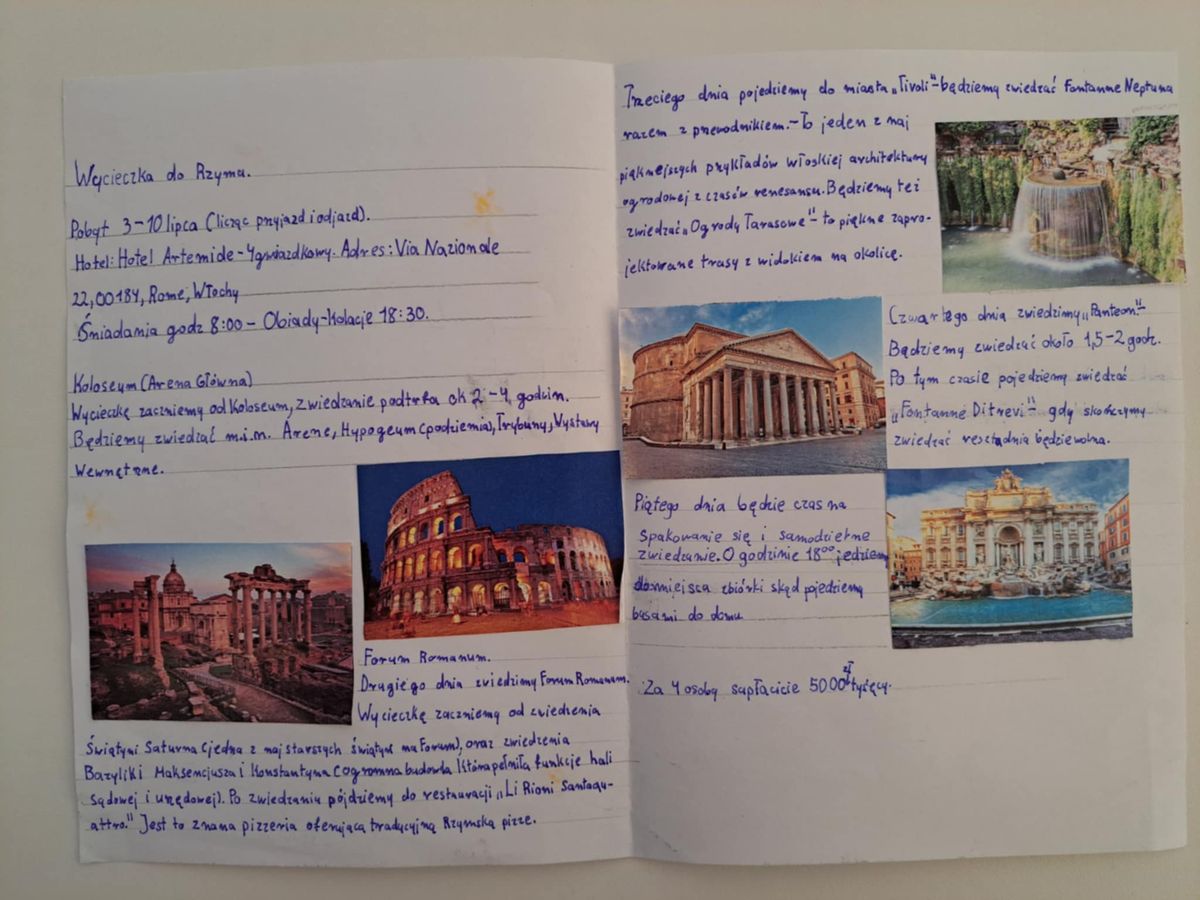 Wycieczka do Rzyma.
Pobyt 3-10 lipca (licząc przyjazd i odjazd).
Hotel: Hotel Artemide - 4 gwiazdkowy. Adres: Via Nazionale
22,00184, Rome, Włochy
Śniadania godz 8:00 - Obiady-kolacje 18:30.
Koloseum (Arena Główna)
Wycieczkę zaczniemy od Koloseum, zwiedzanie podtrfa ok 2-4 godzin.
Będziemy zwiedzać m.i.n. Arene, Hypogeum (podziemia), Trybuny, Wystawy
Wewnętrzne.
Forum Romanum.
Drugiego dnia zwiedzimy Forum Romanum.
Wycieczkę zaczniemy od zwiedzenia
Świątyni Saturna (jedna z naj starszych świątyni na Forum), oraz zwiedzenia
Bazyliki Maksencjusza i Konstantyna (ogromna budowla która pełniła funkcje hali
sądowej i urzędowej). Po zwiedzaniu pójdziemy do restauracji "Li Rioni Santaqu-
attro." Jest to znana pizzeria oferująca tradycyjną Rzymską pizze.
Trzeciego dnia pojedziemy do miasta "Tivoli" - będziemy zwiedzać Fontanne Neptuna
razem z przewodnikiem. - To jeden z naj
piękniejszych przykładów włoskiej architektury
ogrodowej z czasów renesansu. Będziemy też
zwiedzać "Ogrody Tarasowe" - to piękne zapro-
jektowane trasy z widokiem na okolicę.
Czwartego dnia zwiedzimy "Panteon" -
Będziemy zwiedzać około 1,5-2 godz.
Po tym czasie pojedziemy zwiedzać
"Fontanne Ditrevi" - gdy skończymy
zwiedzać reszta dnia będzie wolna.
Piątego dnia będzie czas na
spakowanie się i samodzielne
zwiedzanie. O godzinie 18⁰⁰ jedziemy
do miejsca zbiórki skąd pojedziemy
busami do domu
Za 4 osoby zapłacicie 5000 zł tysięcy.